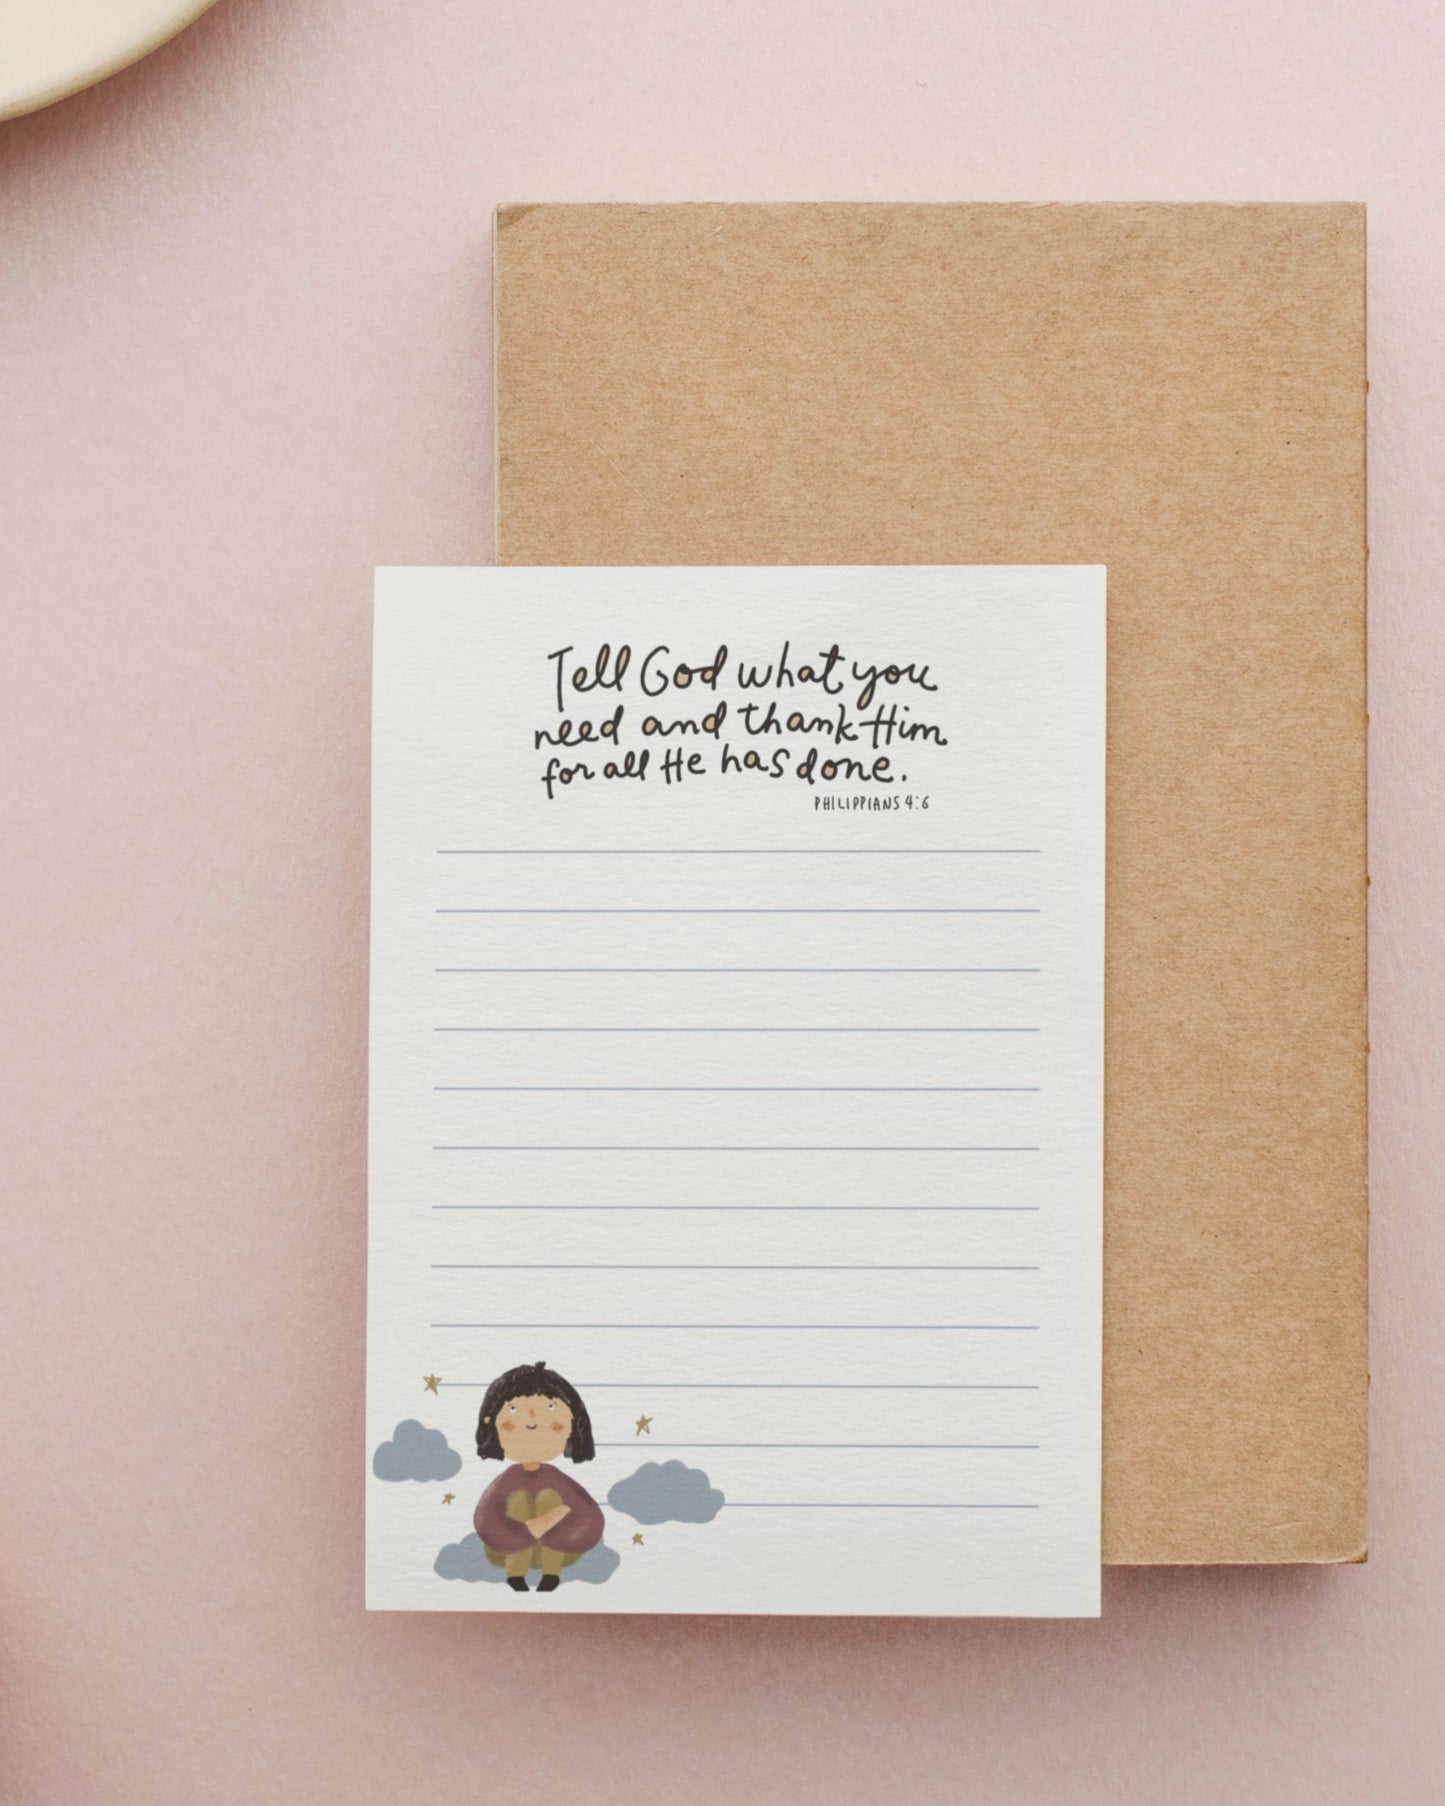 Tell God what you
need and thank Him
for all He has done.
PHILIPPIANS 4:6